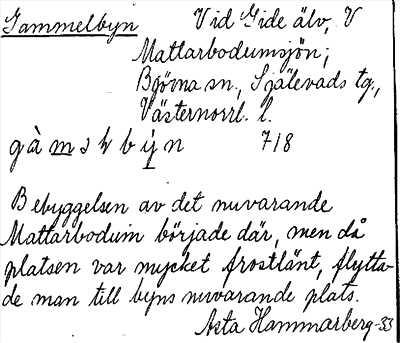 Gammelbyn Vid Gide älv, V
Mattarbodumsjön;
Björna sn., Själevads tg.,
Västernorrl. l.
718
Bebyggelsen av det nuvarande
Mattarbodum började där, men då
platsen var mycket frostlänt, flytta-
de man till byns nuvarande plats.
Asta Hammarberg-33